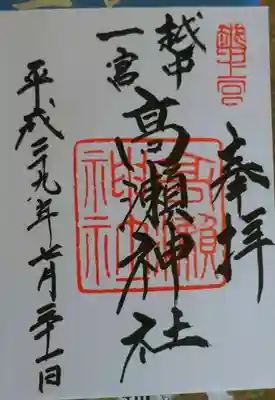 奉拝
越中
一宮
高瀬神社
平成二十九年七月二十一日
高瀬
神社